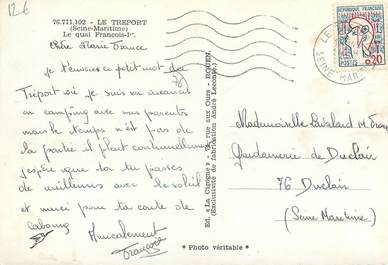 12 €
76.711.102 - LE TREPORT
(Seine-Maritime)
Le quai François-Ier.
Chère Marie France
je t'envoie ce petit mot du
Tréport où je suis en vacances
en camping avec mes parents
mais le temps n'est pas de
la partie il pleut continuellement
j'espère que toi tu passes
de meilleures avec le soleil
et merci pour ta carte de
cabourg
Amicalement
Françoise
Ed. « La Cigogne » - rue aux Ours - ROUEN.
(Exclusivité de fabrication André Leconte).
* Photo véritable *
REPUBLIQUE FRANÇAISE
POSTES
0,20
LE
SEINE MAR
Mademoiselle M.
Gendarmerie de Duclair
76 Duclair
(Seine Maritime)